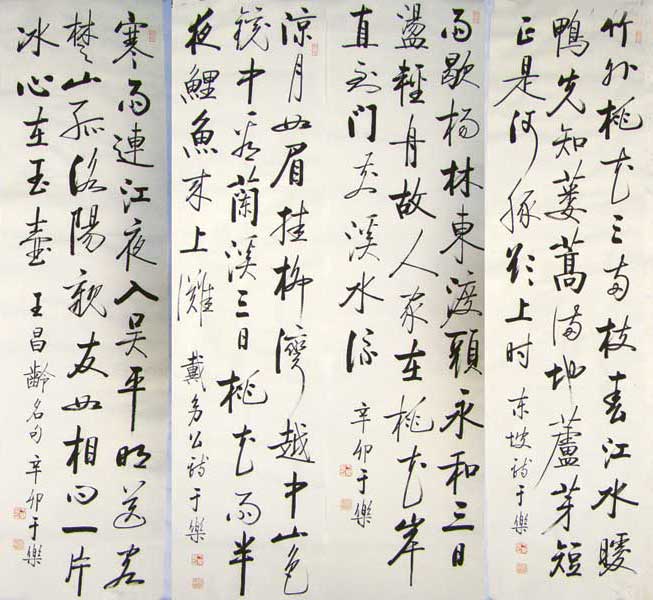 竹外桃花三两枝春江水暖
鴨先知蔞蒿满地蘆芽短
正是河豚欲上时 东坡诗于樂
雨歇楊林東渡頭永和三日
盪輕舟故人家在桃花岸
直到門前溪水流 辛卯于樂
涼月如眉挂柳灣越中山色
镜中看蘭溪三日桃花雨半
夜鯉魚來上灘 戴公诗于樂
寒雨連江夜入吴平明送客
楚山孤洛陽親友如相问一片
冰心在玉壺 王昌齡名句 辛卯于樂